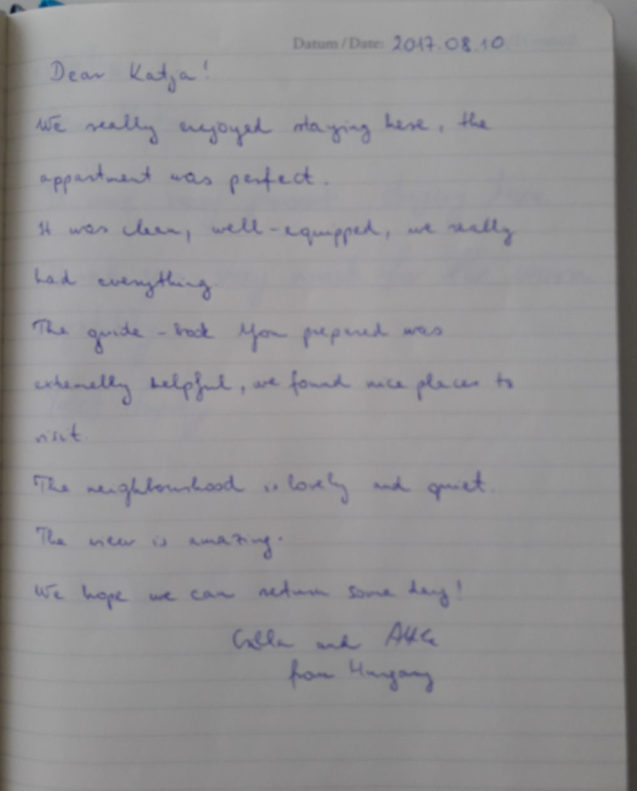 Datum / Date: 2017.08.10
Dear Katja!
We really enjoyed staying here, the
appartment was perfect.
It was clean, well-equipped, we really
had everything
The guide-book you prepared was
extremelly helpful, we found nice places to
visit
The neighbourhood is lovely and quiet.
The view is amazing.
We hope we can return some day!
and
from Hungary